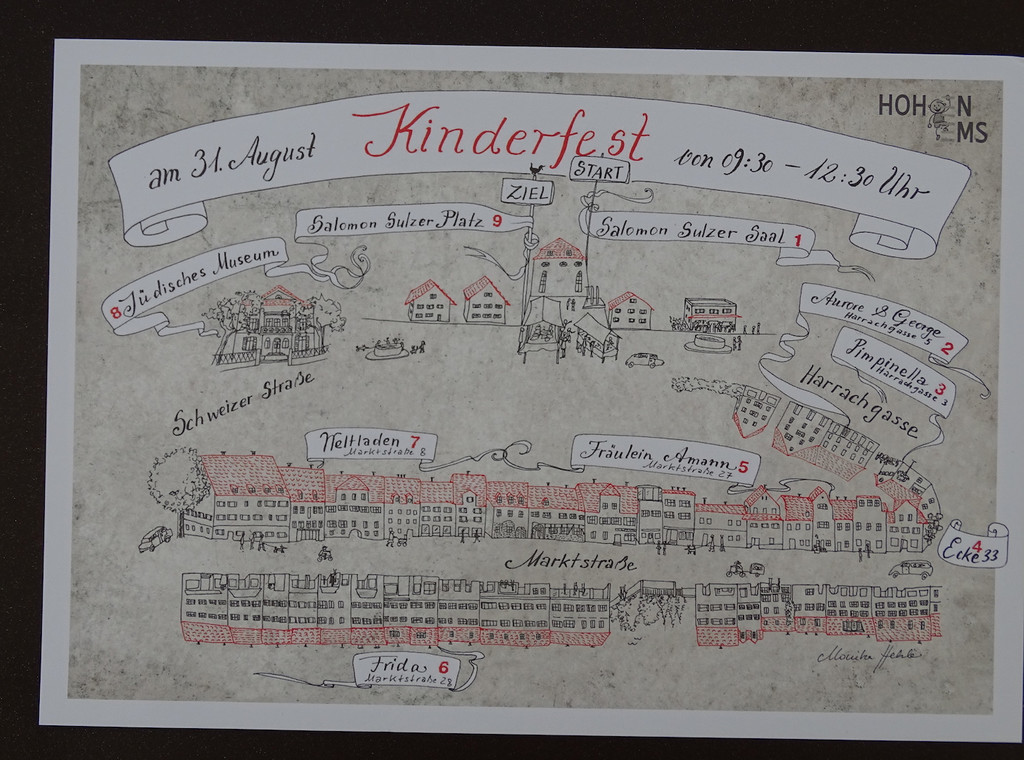 HOHEN
EMS
am 31. August Kinderfest von 09:30 - 12:30 Uhr
ZIEL
START
Salomon Sulzer Platz 9
Salomon Sulzer Saal 1
8 Jüdisches Museum
Aurore & George 2
Harrachgasse 5
Pimpinella 3
Harrachgasse 3
Harrachgasse
Schweizer Straße
Weltladen 7
Marktstraße 8
Fräulein Amann 5
Marktstraße 27
4
Ecke 33
Marktstraße
Frida 6
Marktstraße 28
Monika